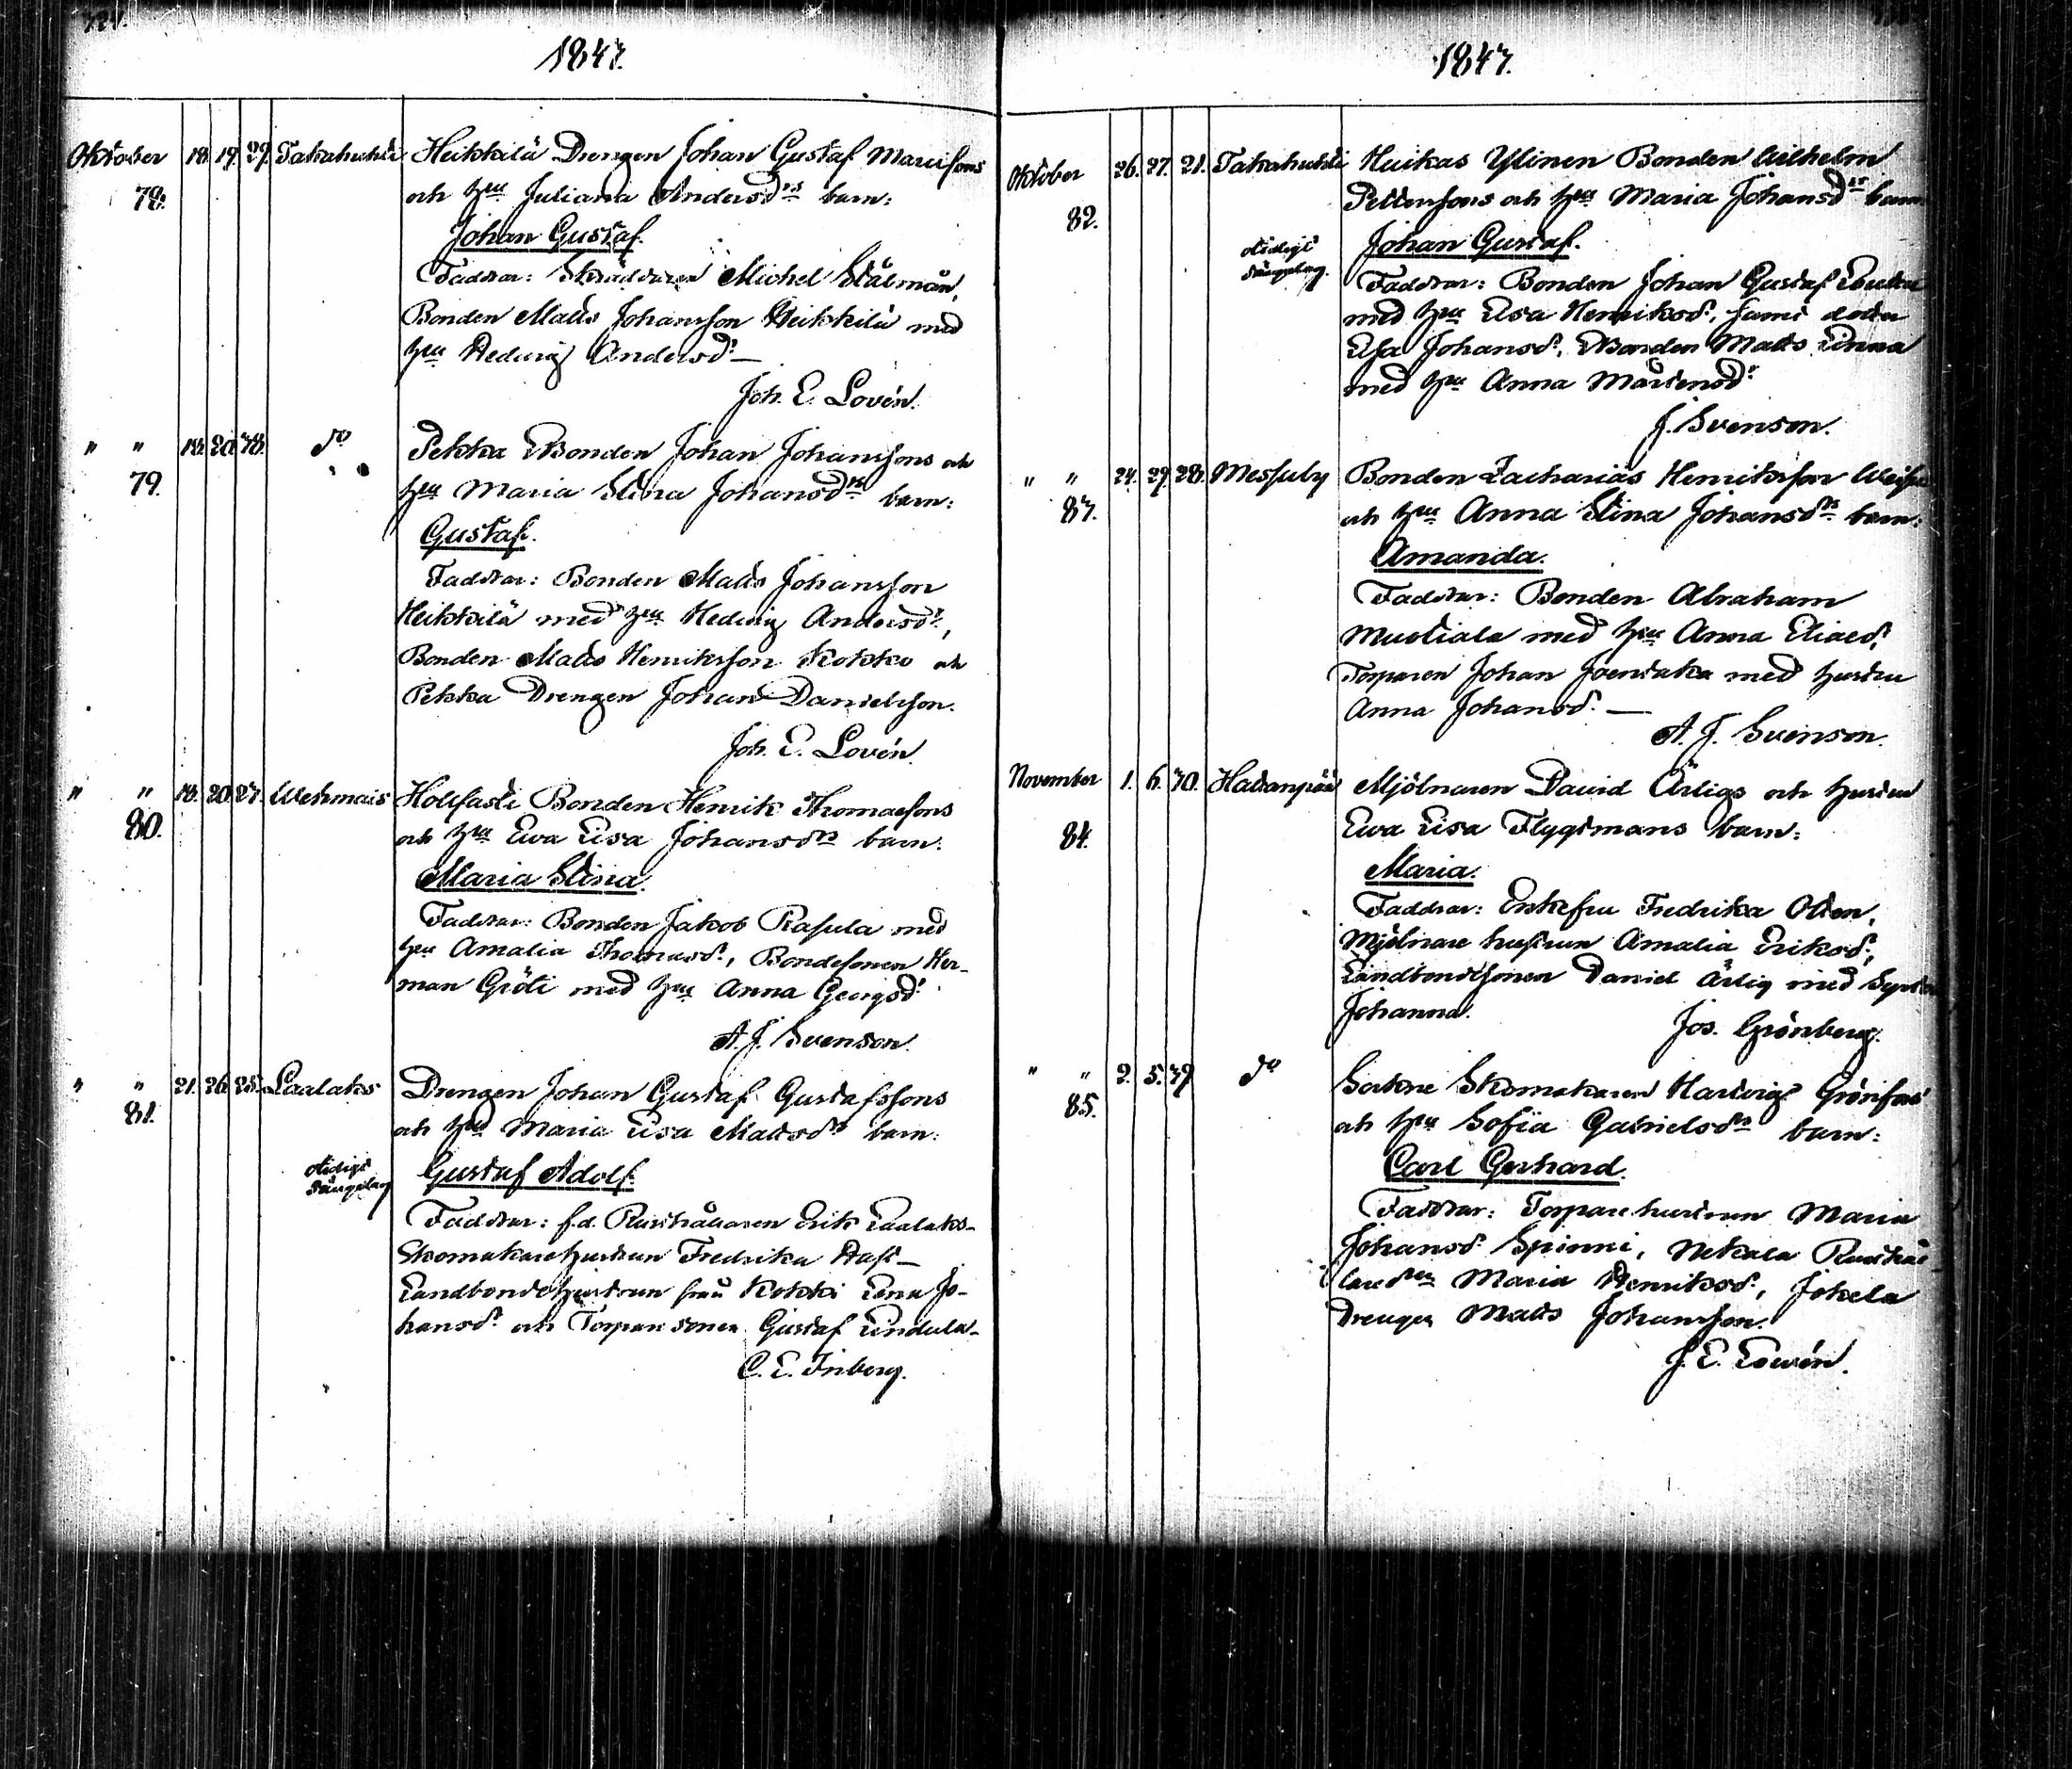 1847.
Oktober 18. 19. 29. Takahuhti Heikkilä Drengen Johan Gustaf
78. och hu Juliana Andersdrs barn:
Johan Gustaf.
Faddrar: Skräddaren Michel Stålman,
Bonden Matts Johansson Heikkilä med
hu Hedvig Andersdr —
Joh. E. Lovén.
" " 18. 20. 38. do Pekka Bonden Johan Johanssons och
79. hu Maria Stina Johansdrs barn:
Gustaf.
Faddrar: Bonden Matts Johansson
Heikkilä med hu Hedvig Andersdr,
Bonden Matts Henriksson Kokko och
Pekka Drengen Johan Danielsson.
Joh. E. Lovén.
" " 18. 20. 27. Wehmais Hollfasti Bonden Henrik Thomassons
80. och hu Eva Lisa Johansdrs barn:
Maria Stina.
Faddrar: Bonden Jakob Rasula med
hu Amalia Thomasdr, Bondesonen Her-
man Gröti med hu Anna Georgsdr
A. J. Svenson.
" " 21. 26. 25. Laalaks Drengen Johan Gustaf Gustafssons
81. och hu Maria Lisa Mattsdrs barn:
Gustaf Adolf.
Faddrar: f.d. Rusthållaren Erik Laalaks-
Skomakarehustrun Fredrika
Landbondehustrun från Kokki Lena Jo-
hansdr och Torparesonen Gustaf Lindula-
C. E. Friberg.
1847.
Oktober 26. 27. 21. Takahuhti Huikas Ylinen Bonden Wilhelm
82. Pettersons och hu Maria Johansdrs barn
Johan Gustaf.
Faddrar: Bonden Johan Gustaf
med hu Lisa Henriksdr, samt
Johansdr, Bonden Matts Linna
med hu Anna Mårtensdr
J. Svenson.
" " 24. 29. 28. Messuby Bonden Zacharias Henriksson
83. och hu Anna Stina Johansdrs barn:
Amanda.
Faddrar: Bonden Abraham
Mustiala med hu Anna Eliaedr,
Torparen Johan Joensaka med hustru
Anna Johansdr. —
A. J. Svenson.
November 1. 6. 30. Hatanpää Mjölnaren David Ärligs och hustru
84. Eva Lisa Flygtmans barn:
Maria.
Faddrar: Enkefru Fredrika Olsen,
Mjölnare hustrun Amalia Eriksdr,
Landbondesonen Daniel Ärlig med
Johanna.
Jos. Grönberg.
" " 2. 5. 39 do Sockne Skomakaren Hartvig
85. och hu Sofia Gabrielsdrs barn:
Carl Gerhard.
Faddrar: Torparehustrun Maria
Johansdr Spinni, Nekala Rusthål-
laredr Maria Henriksdr, Jokela
Drengen Matts Johansson.
J. E. Lovén.